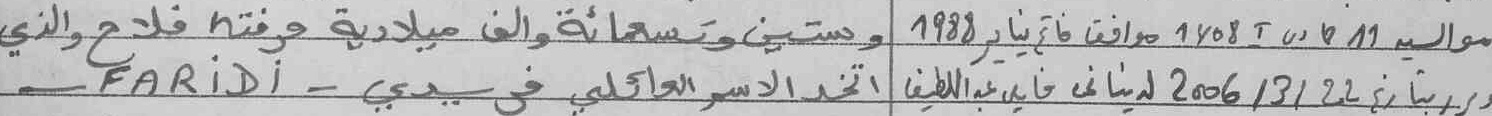 مواليه 11 جمادى I 1408 موافق فاتح يناير 1988 وستين وتسعمائة والف ميلادية حرفته فلاح والذي
بتاريخ 22/3/2006 لدينا نحن عبد اللطيف اتخد الاسم العائلي فريدي - FARiDi -